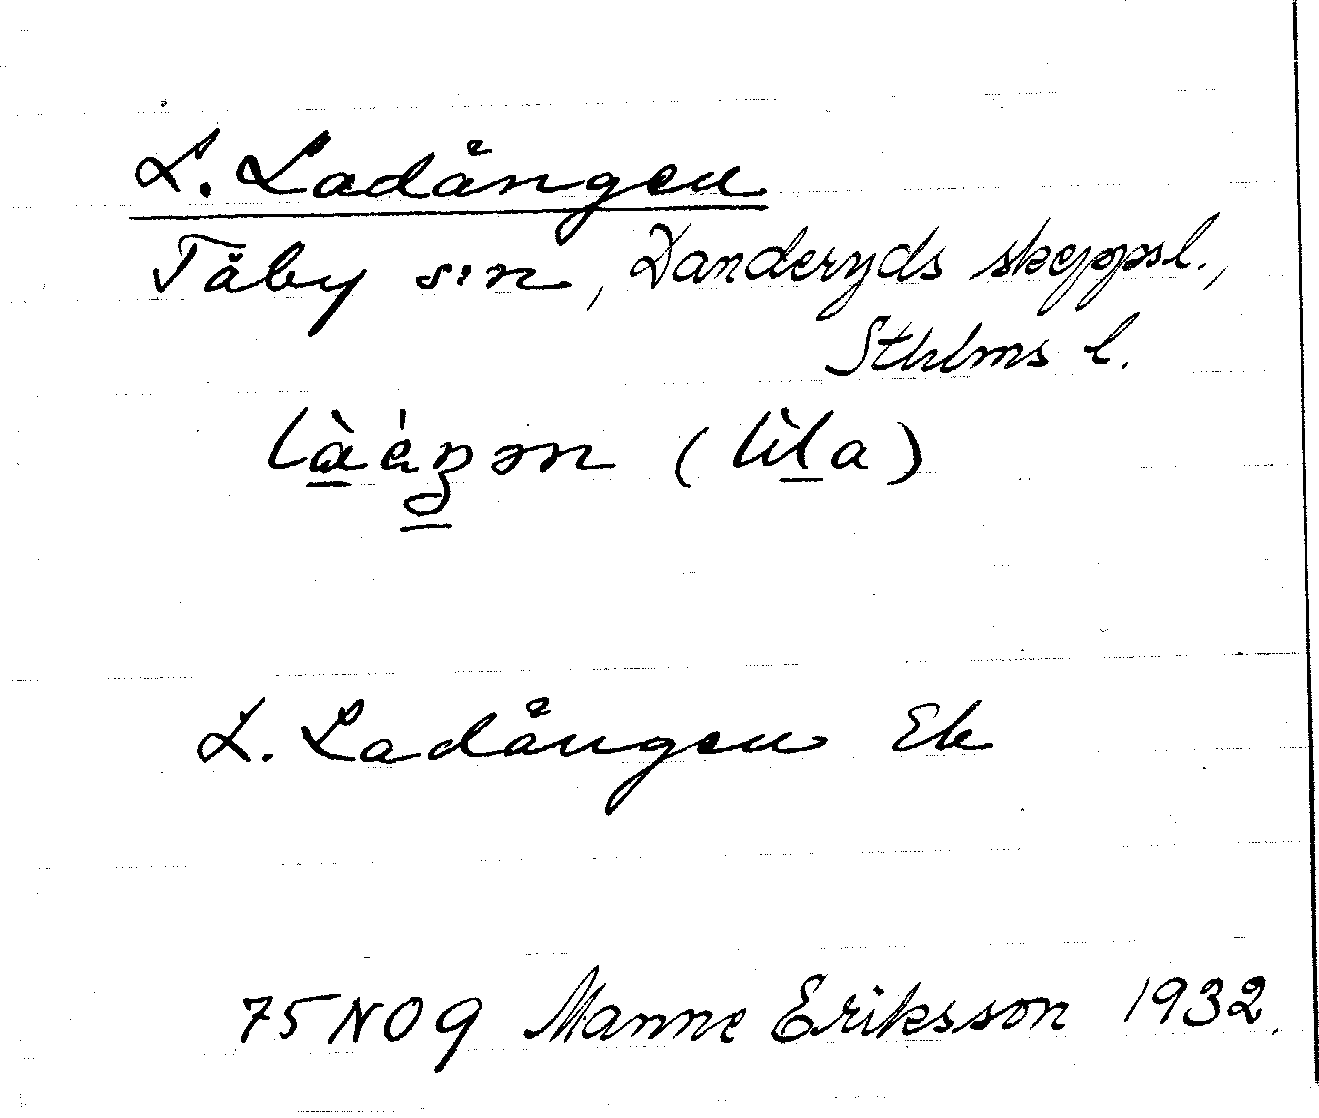 L. Ladången
Täby sn, Danderyds skeppsl.,
Sthlms l.
(lila)
L. Ladången Ek
75 NO 9 Manne Eriksson 1932.